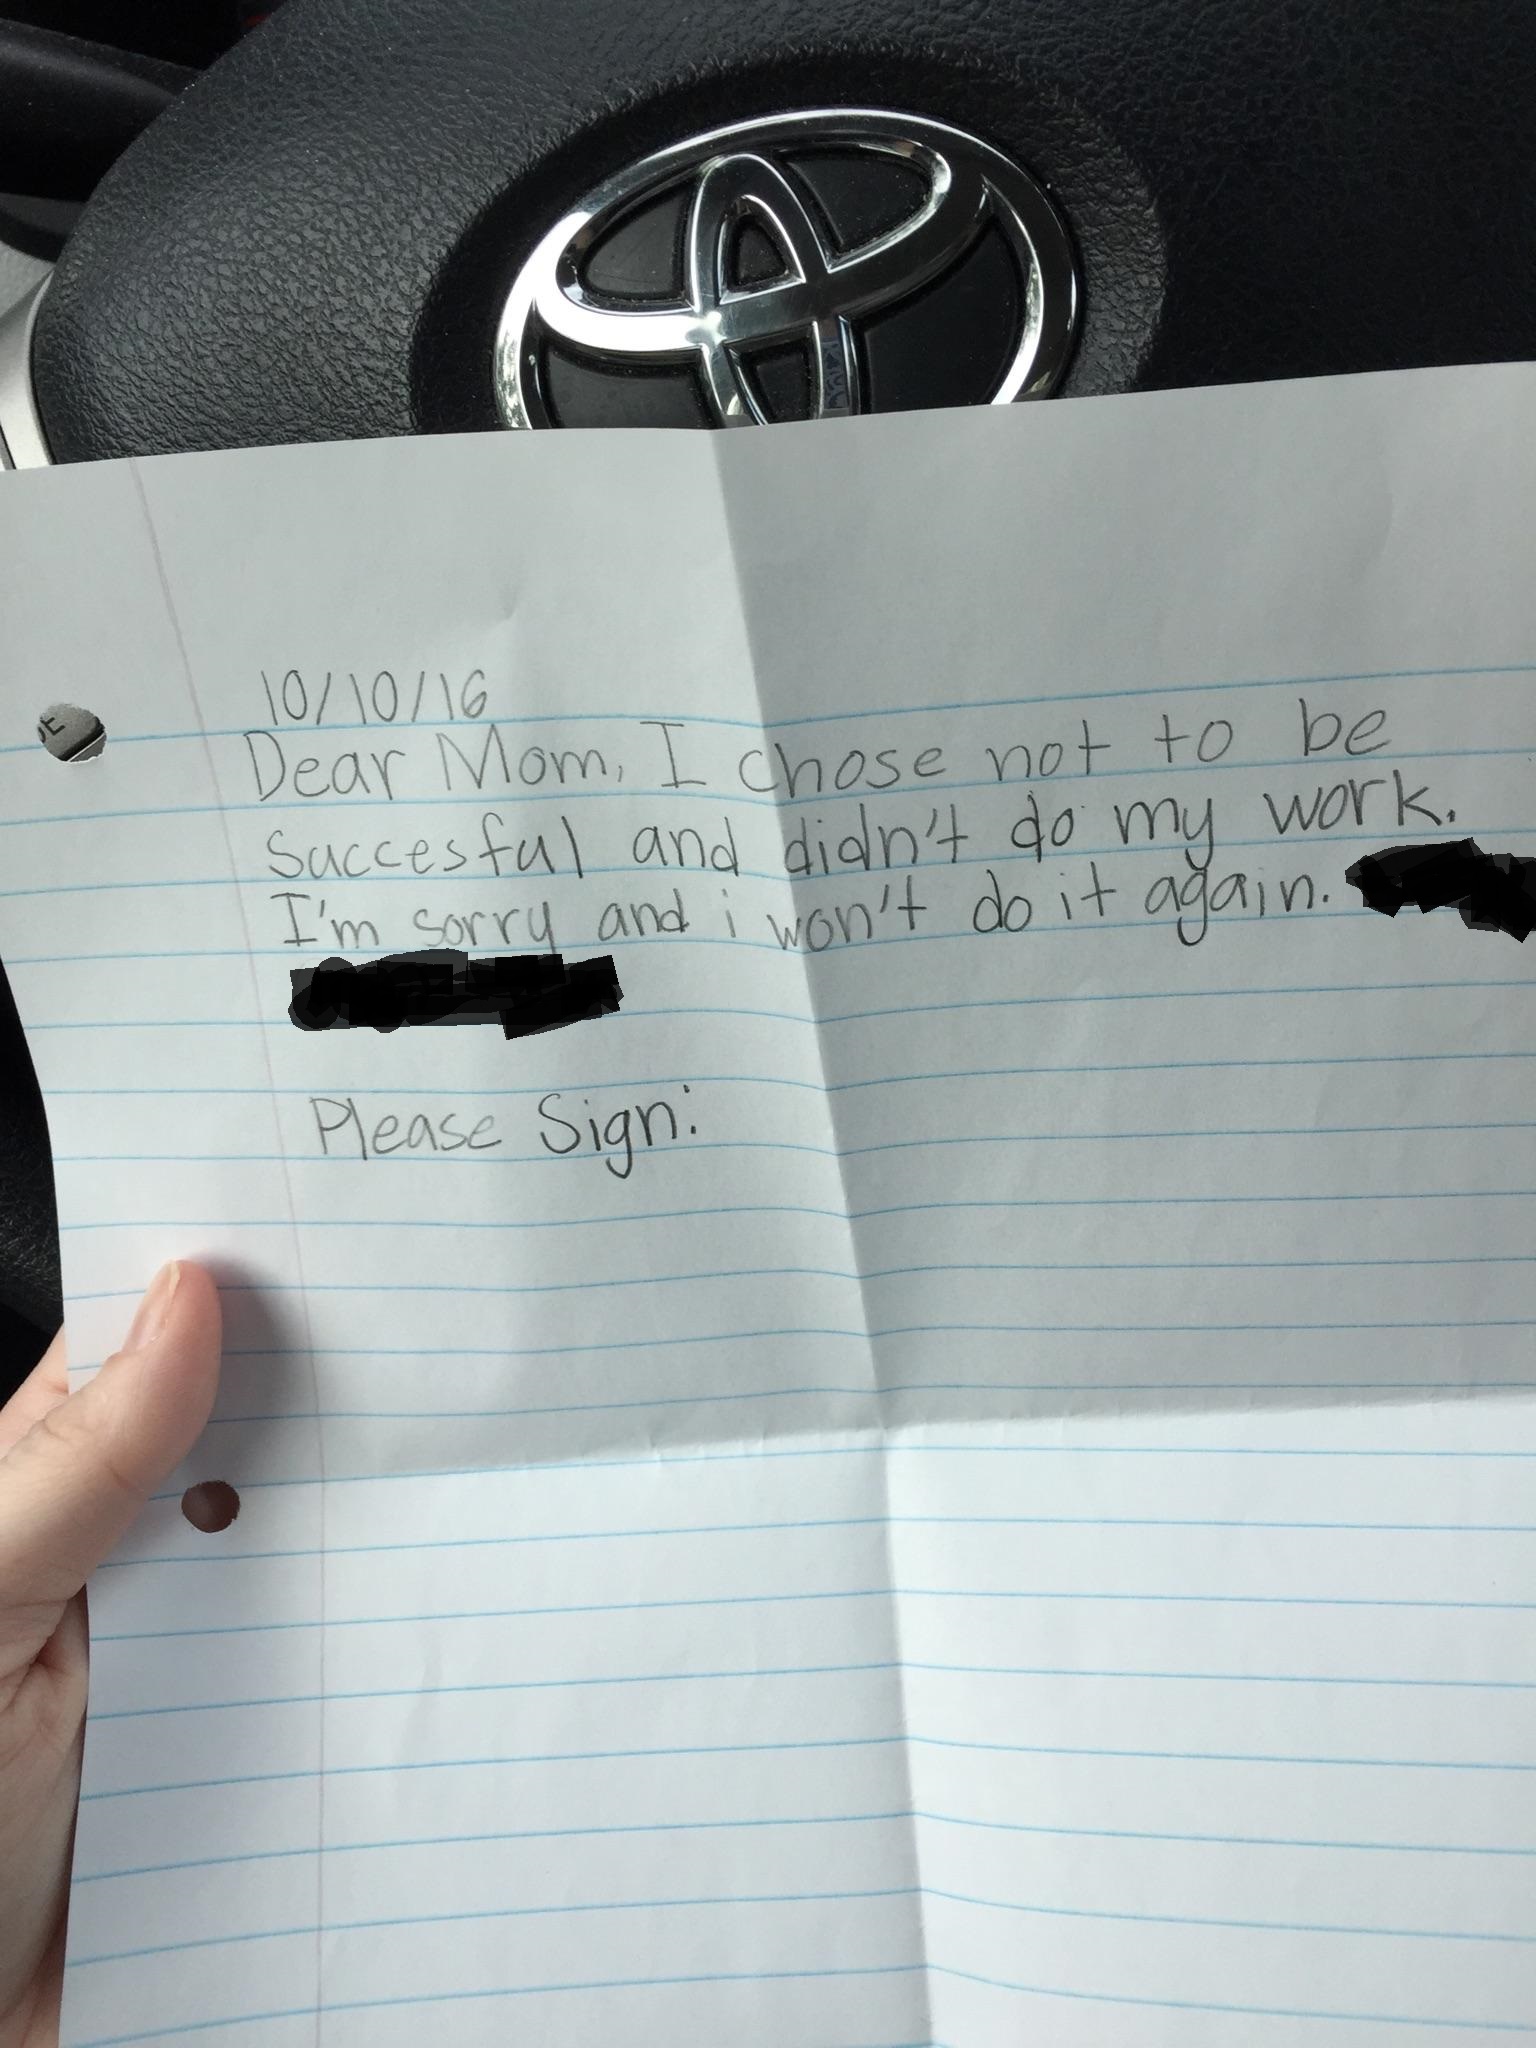 10/10/16
Dear Mom, I chose not to be
Succesful and didn't do my work.
I'm sorry and i won't do it again.
Please Sign: